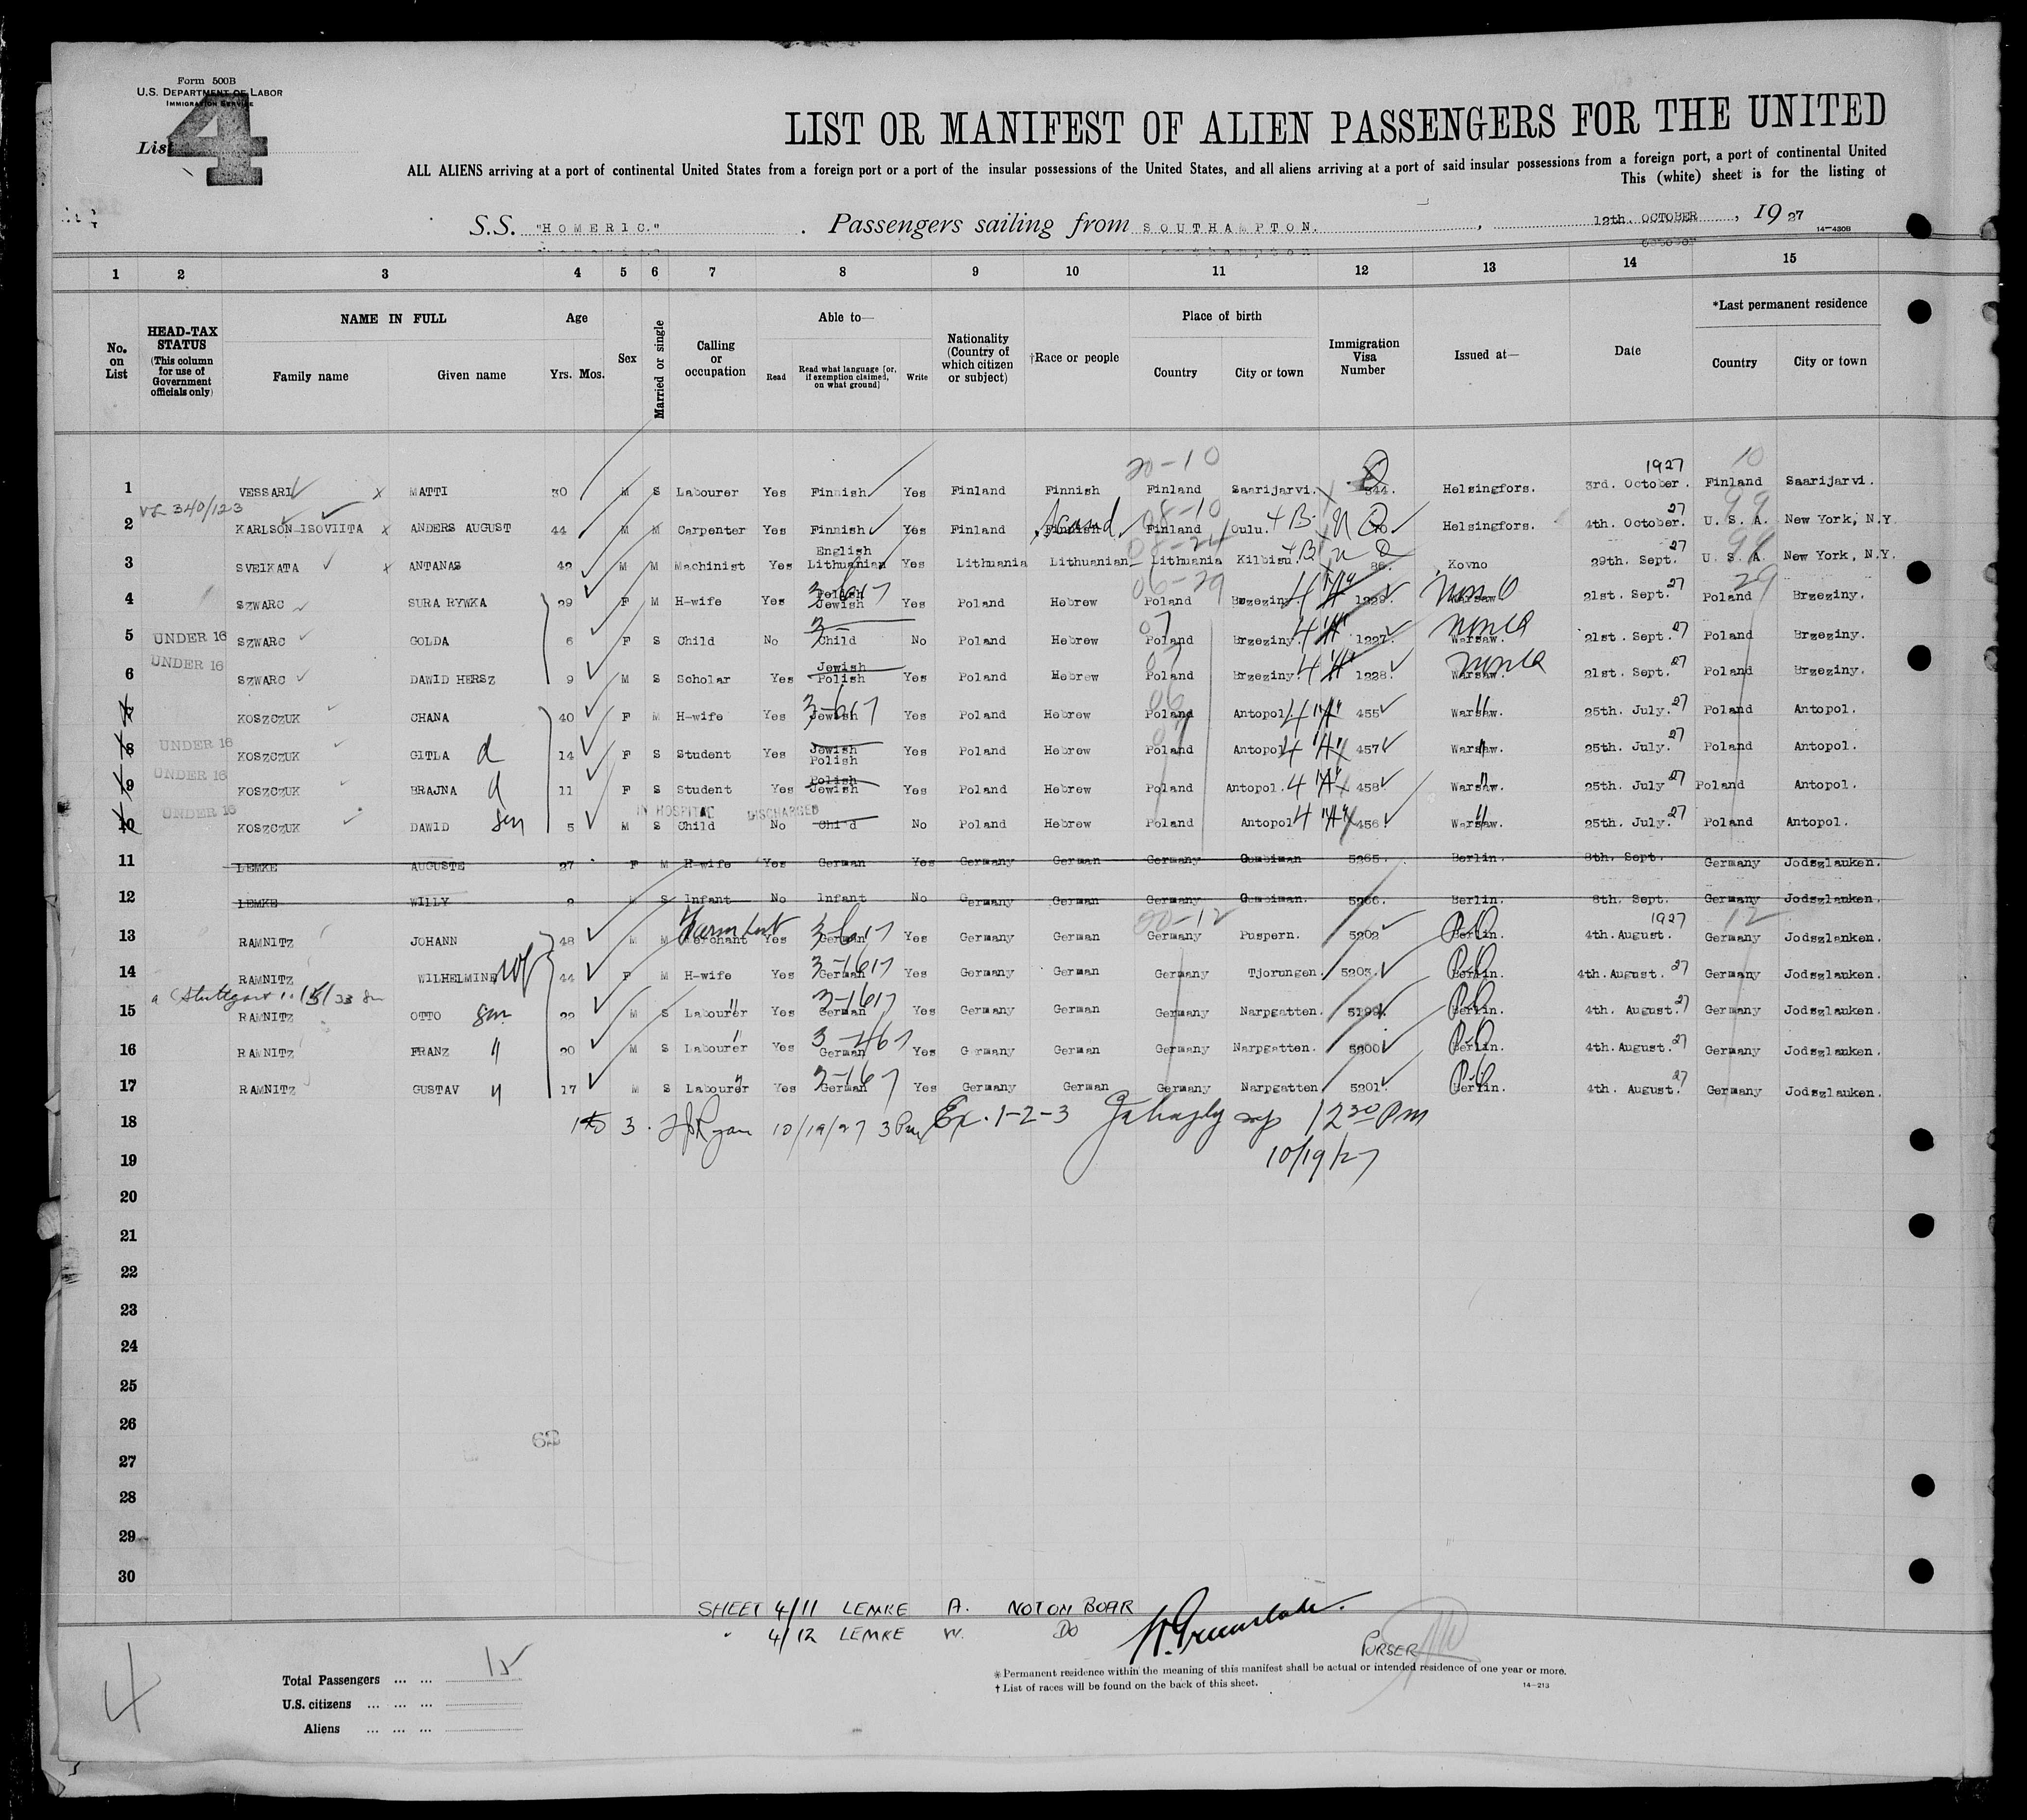 Form 500B
U.S. DEPARTMENT OF LABOR
IMMIGRATION SERVICE
List 4
LIST OR MANIFEST OF ALIEN PASSENGERS FOR THE UNITED
ALL ALIENS arriving at a port of continental United States from a foreign port or a port of the insular possessions of the United States, and all aliens arriving at a port of said insular possessions from a foreign port, a port of continental United
This (white) sheet is for the listing of
S.S. "HOMERIC." Passengers sailing from SOUTHAMPTON. 12th. OCTOBER, 1927
14-430B
1 2 3 4 5 6 7 8 9 10 11 12 13 14 15
No. on List
HEAD-TAX STATUS (This column for use of Government officials only)
NAME IN FULL Family name Given name
Age Yrs. Mos.
Sex
Married or single
Calling or occupation
Able to— Read Read what language [or, if exemption claimed, on what ground] Write
Nationality (Country of which citizen or subject)
†Race or people
Place of birth Country City or town
Immigration Visa Number
Issued at—
Date
*Last permanent residence Country City or town
20-10 1927 10
1 VESSARI x MATTI 30 M S Labourer Yes Finnish Yes Finland Finnish Finland Saarijarvi. 344. Helsingfors. 3rd. October. Finland Saarijarvi.
VL 340/123
2 KARLSON-ISOVIITA x ANDERS AUGUST 44 M M Carpenter Yes Finnish Yes Finland Finnish Scand Finland Oulu. 4 B. N Q 70 Helsingfors. 4th. October. 27 U. S. A. New York, N.Y.
3 SVEIKATA x ANTANAS 42 M M Machinist Yes English Lithuanian Yes Lithuania Lithuanian Lithuania Kilbisu. 86. Kovno 29th. Sept. 27 U. S. A. New York, N.Y.
4 SZWARC SURA RYWKA 29 F M H-wife Yes Polish Jewish Yes Poland Hebrew Poland Brzeziny. 4 "A" 1229 Warsaw 21st. Sept. 27 Poland Brzeziny.
5 UNDER 16 SZWARC GOLDA 6 F S Child No Child No Poland Hebrew Poland Brzeziny. 4 "A" 1227 Warsaw. 21st. Sept. 27 Poland Brzeziny.
6 UNDER 16 SZWARC DAWID HERSZ 9 M S Scholar Yes Jewish Polish Yes Poland Hebrew Poland Brzeziny. 4 "A" 1228 Warsaw. 21st. Sept. 27 Poland Brzeziny.
7 KOSZCZUK CHANA 40 F M H-wife Yes Jewish Yes Poland Hebrew Poland Antopol 4 "A" 455 Warsaw. 25th. July. 27 Poland Antopol.
8 UNDER 16 KOSZCZUK GITLA d 14 F S Student Yes Jewish Polish Yes Poland Hebrew Poland Antopol 4 "A" 457 Warsaw. 25th. July. 27 Poland Antopol.
9 UNDER 16 KOSZCZUK BRAJNA d 11 F S Student Yes Polish Jewish Yes Poland Hebrew Poland Antopol. 4 "A" 458 Warsaw. 25th. July 27 Poland Antopol.
IN HOSPITAL DISCHARGED
10 UNDER 16 KOSZCZUK DAWID son 5 M S Child No Child No Poland Hebrew Poland Antopol 4 "A" 456 Warsaw. 25th. July. 27 Poland Antopol.
11 LEMKE AUGUSTE 27 F M H-wife Yes German Yes Germany German Germany Gumbiman 5265. Berlin. 8th. Sept. Germany Jodszlauken.
12 LEMKE WILLY 2 M S Infant No Infant No Germany German Germany Gumbiman. 5266. Berlin. 8th. Sept. Germany Jodszlauken.
20-12 1927 12
13 RAMNITZ JOHANN 48 M M Merchant Yes German Yes Germany German Germany Puspern. 5202 Berlin. 4th. August. Germany Jodszlanken.
14 RAMNITZ WILHELMINE wf 44 F M H-wife Yes German Yes Germany German Germany Tjorungen. 5203. Berlin. 4th. August. 27 Germany Jodszlanken.
15 RAMNITZ OTTO son 22 M S Labourer Yes German Yes Germany German Germany Narpgatten. 5199. Berlin. 4th. August. 27 Germany Jodszlauken.
16 RAMNITZ FRANZ " 20 M S Labourer Yes German Yes Germany German Germany Narpgatten. 5200 Berlin. 4th. August. 27 Germany Jodszlauken.
17 RAMNITZ GUSTAV " 17 M S Labourer Yes German Yes Germany German Germany Narpgatten 5201. Berlin. 4th. August. 27 Germany Jodszlauken.
18 10/19/27 Ex. 1-2-3 12 30 PM
19 10/19/27
20
21
22
23
24
25
26
27
28
29
30
SHEET 4/11 LEMKE A. NOT ON BOAR
" 4/12 LEMKE W. DO
PURSER
4
Total Passengers ... ... 15
U.S. citizens ... ... ...
Aliens ... ... ...
* Permanent residence within the meaning of this manifest shall be actual or intended residence of one year or more.
† List of races will be found on the back of this sheet.
14-213